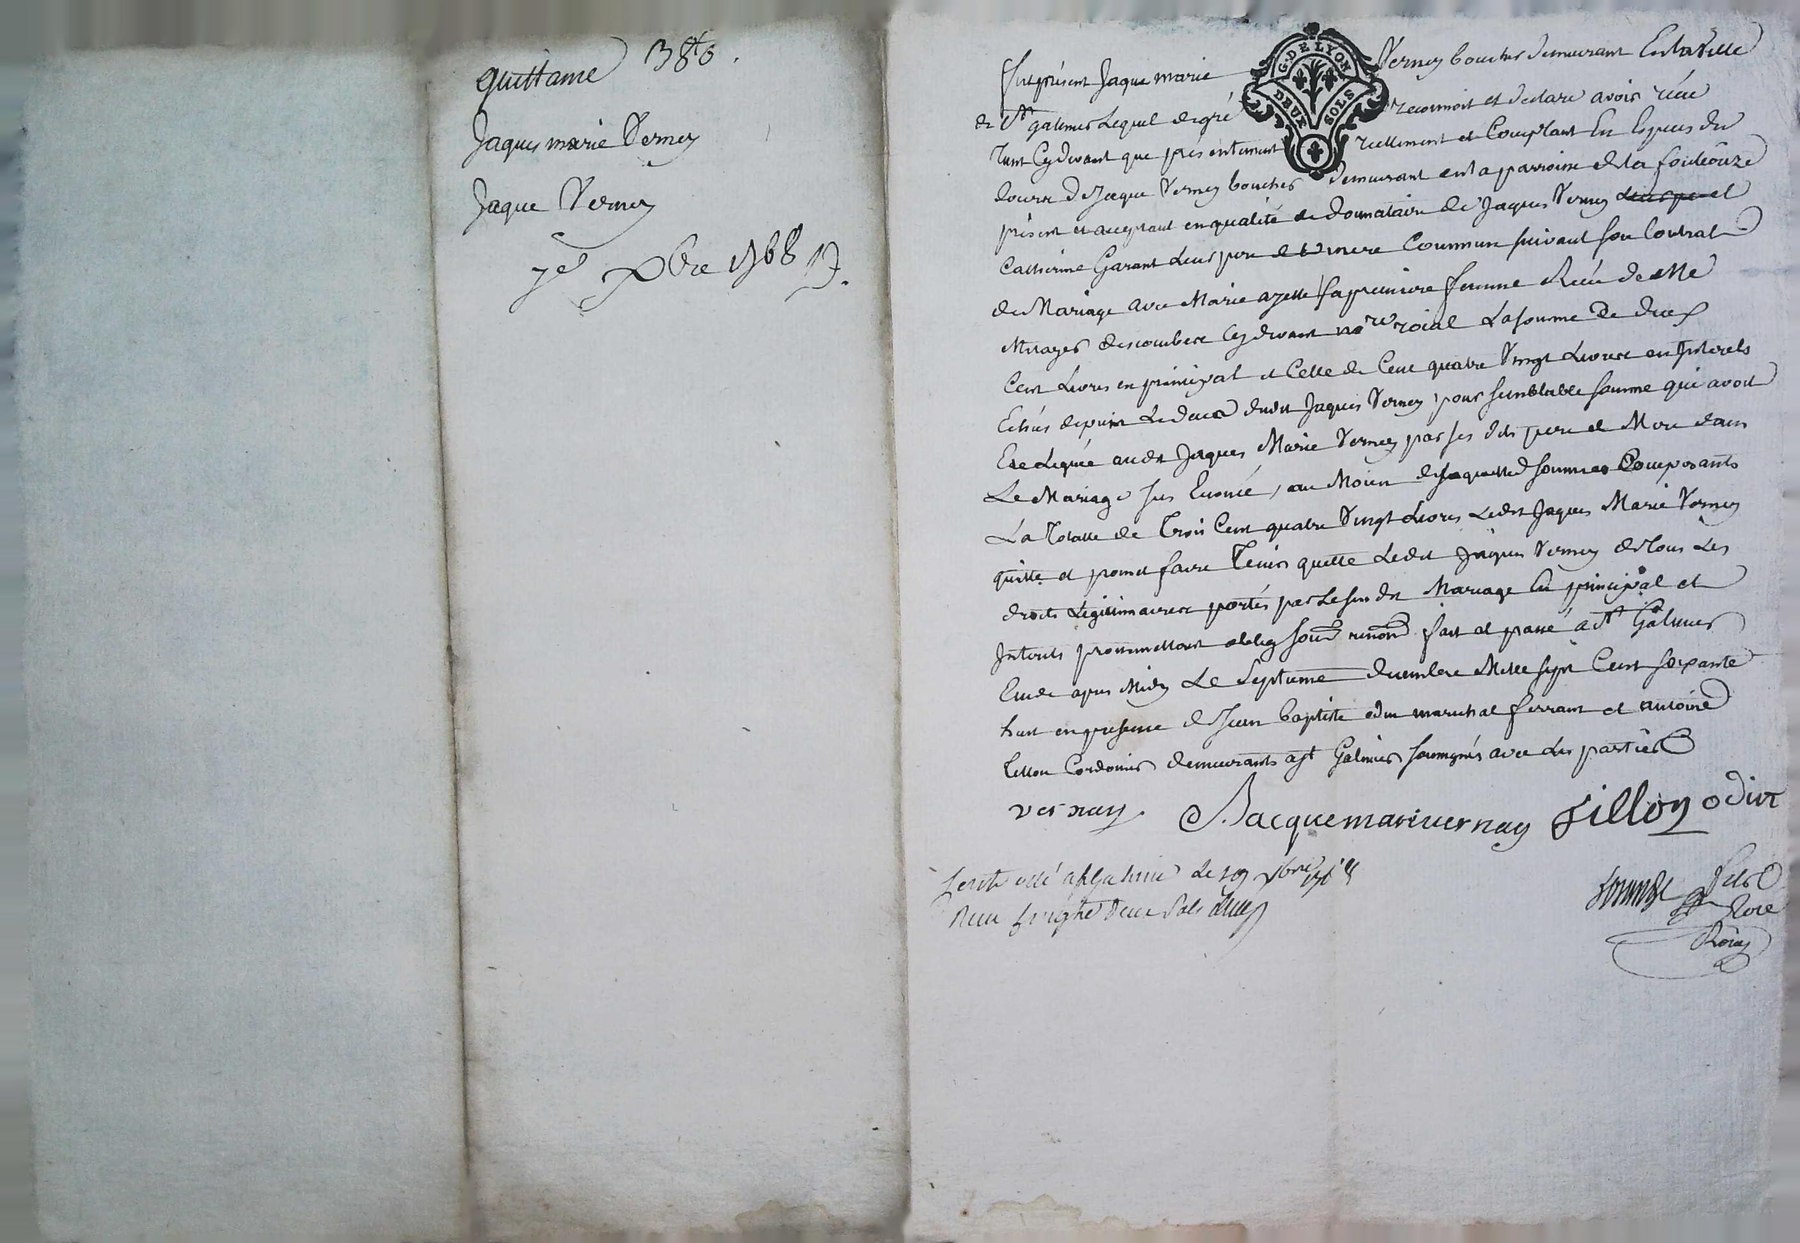 quittance 380 .
Jaques marie Verney
Jaque Verney
7e Xbre 1768
G. DE LYON
DEUX SOLS
Fut présent Jaque marie Verney boucher demeurant En la Ville
de St galmier Lequel de gré reconnoit et declare avoir récu
tant Cydevant que présentement réellement et Comptant En Especes du
cours de Jaque Verney boucher demeurant en la parroisse de la fouleôuze
présent et acceptant en qualité de donnataire de Jaques Verney et
Catherine Garant Leurs pere et mere Commun suivant son Contrat
de Mariage avec Marie azette sa premiere femme Reçu de Me
descombere Cydevant nore roial La somme De deux
Cent Livres en principal et Celle de Cent quatre Vingt Livres en Interets
Echûs depuis Le deces dudit Jaques Verney pour semblable somme qui avoit
Ete Leguée audit Jaques Marie Verney par ses dits pere et Mere dans
Le Mariage sus Enoncé, au Moien desquelles sommes Composants
La Totalle de Trois Cent quatre Vingt Livres Ledit Jaques Marie Verney
quitte et promet faire Tenir quitte Ledit Jaques Verney de Tous Les
droits Légitimaires portés par Le susdit Mariage En principal et
Interets promettant oblig soum renon fait et passé a St Galmier
Etude apres Midy Le Septieme decembre Mille sept Cent soixante
huit en presence de Jean baptiste odin marechal ferrant et antoine
tillon Cordonnier demeurants a St Galmier soussignés avec Les parties
vernay Jacquemarivernay Tillon odin
Controllé a St Galmier Le 19 Xbre 1768
Reçu deux Sols
nore
Roial